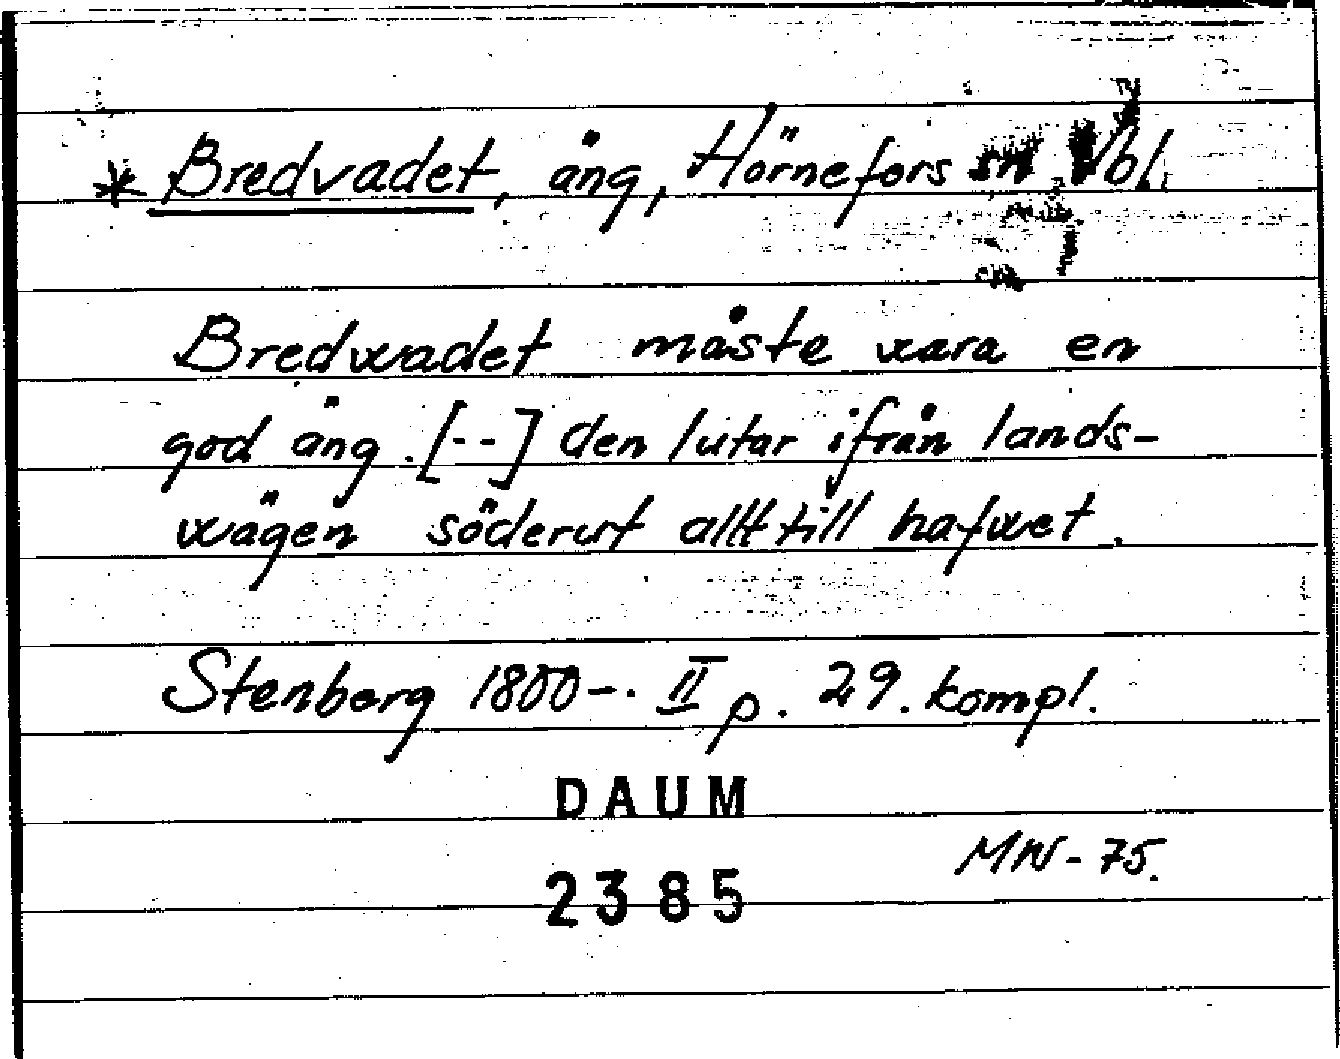 * Bredvadet, äng, Hörnefors sn Vbl.
Bredwadet måste wara en
god äng. [--] den lutar ifrån lands-
wägen söderut allt till hafwet.
Stenberg 1800-. II p. 29. kompl.
DAUM
MW-75.
2385